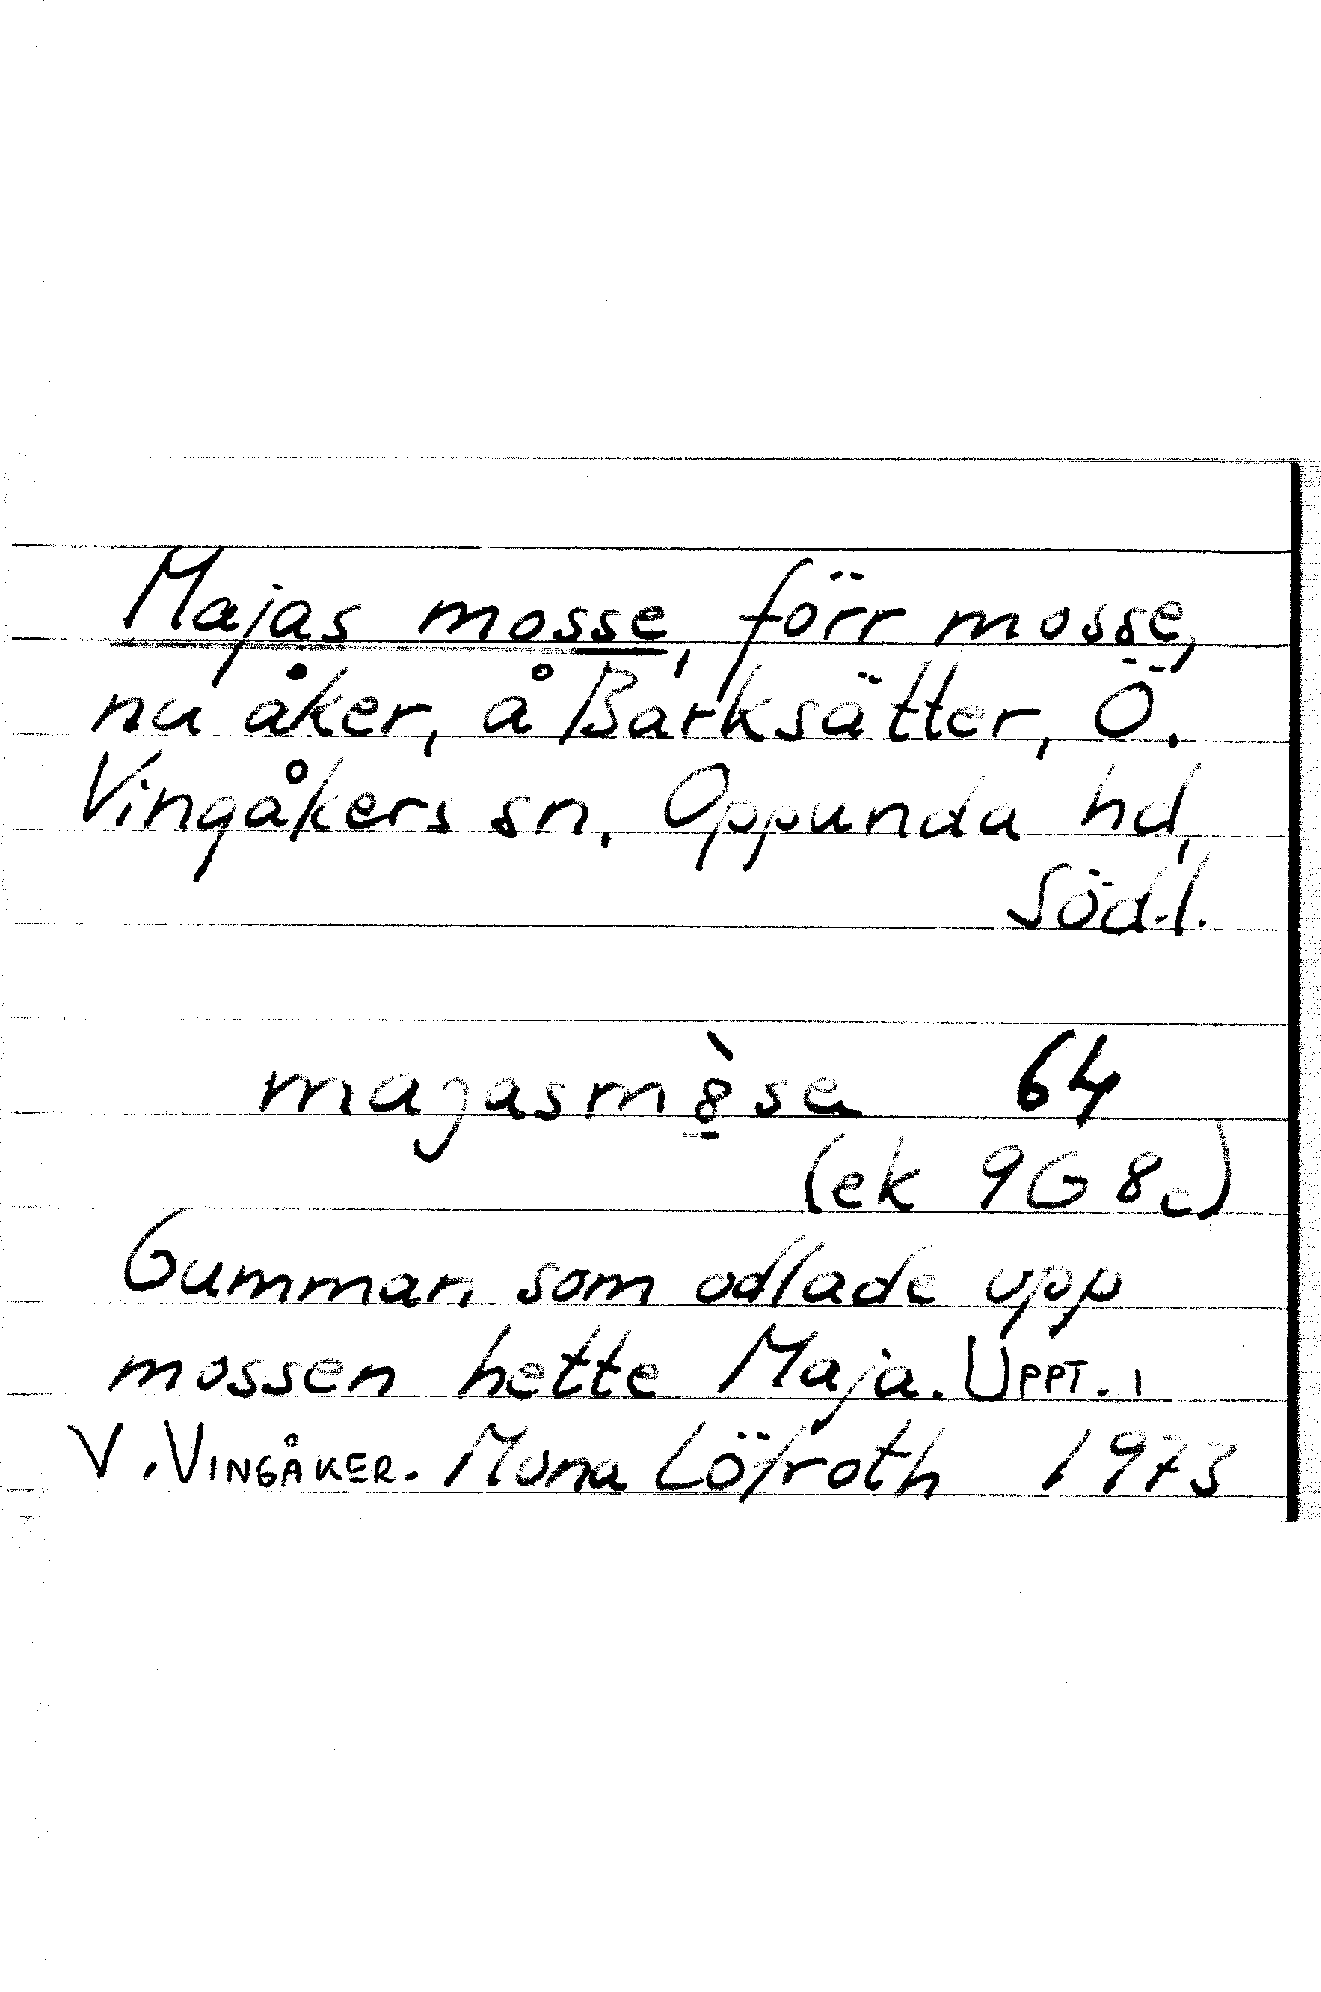 Majas mosse, förr mosse,
nu åker, å Barksätter, Ö.
Vingåkers sn. Oppunda hd,
Södl.
64
(ek 9G8c)
Gumman som odlade upp
mossen hette Maja. UPPT. I
V. VINGÅKER. Mona Löfroth 1973